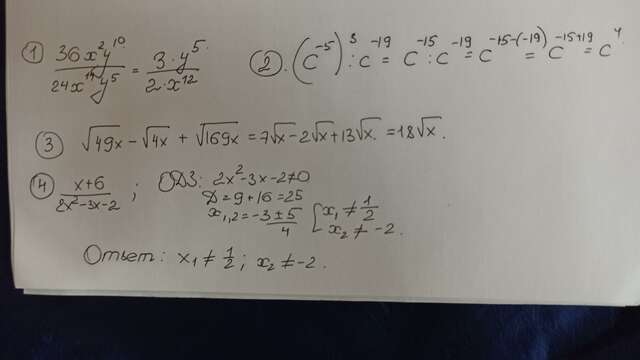 ① 36x²y¹⁰ / 24x¹⁴y⁵ = 3·y⁵ / 2·x¹² ②. (C⁻⁵)³ : C⁻¹⁹ = C⁻¹⁵ : C⁻¹⁹ = C⁻¹⁵⁻⁽⁻¹⁹⁾ = C⁻¹⁵⁺¹⁹ = C⁴.
③ √49x − √4x + √169x = 7√x − 2√x + 13√x = 18√x.
④ x+6 / 2x²−3x−2 ; ОДЗ: 2x²−3x−2≠0
Д = 9+16 = 25
x₁,₂ = −3 ± 5 / 4 [ x₁ ≠ 1/2
x₂ ≠ −2.
Ответ: x₁ ≠ 1/2 ; x₂ ≠ −2.